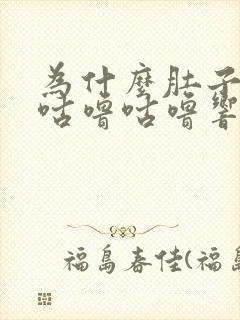 為什麼肚子
咕嚕咕嚕響
福島春佳(福島